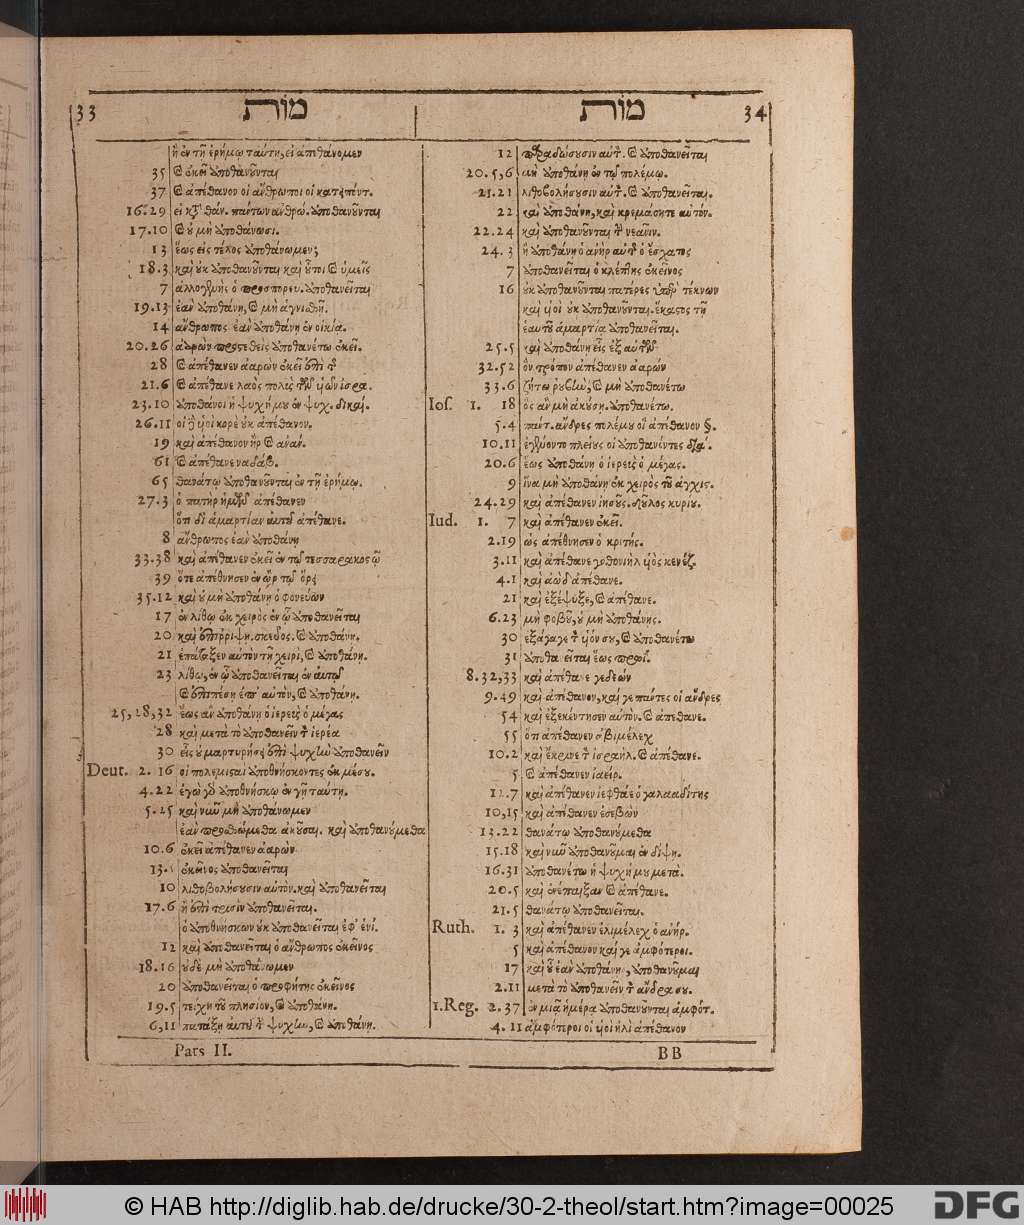 33 מות
ἢ ἐν τῇ ἐρήμῳ ταύτῃ, εἰ ἀπεθάνομεν
35 ἐκεῖ ἀποθανοῦνται
37 ἀπέθανον οἱ ἄνθρωποι οἱ
16.29 εἰ θάν. πάντων ἀνθρώ. ἀποθανοῦνται
17.10 μὴ ἀποθάνωσι.
13 ἕως εἰς τέλος ἀποθάνωμεν;
18.3 καὶ οὐκ ἀποθανοῦνται καὶ οὗτοι ὑμεῖς
7 ἀλλογενὴς ὁ προσπορευ. ἀποθανεῖται
19.13 ἐὰν ἀποθάνῃ, μὴ ἁγνισθῇ.
14 ἄνθρωπος ἐὰν ἀποθάνῃ ἐν οἰκίᾳ.
20.26 ἀαρὼν προςτεθεὶς ἀποθανέτω ἐκεῖ.
28 ἀπέθανεν ἀαρὼν ἐκεῖ ἐπὶ
21.6 ἀπέθανε λαὸς πολὺς τῶν υἱῶν ἰσρα.
23.10 ἀποθάνοι ἡ ψυχή μου ἐν ψυχ. δικαί.
26.11 οἱ υἱοὶ κορὲ οὐκ ἀπέθανον.
19 καὶ ἀπέθανον ἢρ αὐάν.
61 ἀπέθανε ναδάβ.
65 θανάτῳ ἀποθανοῦνται ἐν τῇ ἐρήμῳ.
27.3 ὁ πατὴρ ἡμῶν ἀπέθανεν
ὅτι δι ἁμαρτίαν αὐτοῦ ἀπέθανε.
8 ἄνθρωπος ἐὰν ἀποθάνῃ
33.38 καὶ ἀπέθανεν ἐκεῖ ἐν τῷ τεσσαρακοςῷ
39 ὅτε ἀπέθνησεν ἐν ὢρ τῷ ὄρει
35.12 καὶ οὐ μὴ ἀποθάνῃ ὁ φονεύων
17 ἐν λίθῳ ἐκ χειρὸς ἐν ᾧ ἀποθανεῖται
20 καὶ ἐπιρρίψῃ, σκεῦος. ἀποθάνῃ.
21 ἐπάταξεν αὐτὸν τῇ χειρὶ, ἀποθάνῃ.
23 λίθῳ, ἐν ᾧ ἀποθανεῖται ἐν αὐτῷ
ἐπιπέσῃ ἐπ' αὐτὸν, ἀποθάνῃ.
25, 28, 32 ἕως ἂν ἀποθάνῃ ὁ ἱερεὺς ὁ μέγας
28 καὶ μετὰ τὸ ἀποθανεῖν τὸν ἱερέα
30 εἷς οὐ μαρτυρήσει ἐπὶ ψυχὴν ἀποθανεῖν
Deut. 2. 16 οἱ πολεμιςαὶ ἀποθνήσκοντες ἐκ μέσου.
4.22 ἐγὼ γὰρ ἀποθνήσκω ἐν γῇ ταύτῃ.
5.25 καὶ νῦν μὴ ἀποθάνωμεν
ἐὰν προσθώμεθα ἀκοῦσαι. καὶ ἀποθανούμεθα
10.6 ἐκεῖ ἀπέθανεν ἀαρὼν
13. ἐκεῖνος ἀποθανεῖται
10 λιθοβολήσουσιν αὐτὸν. καὶ ἀποθανεῖται
17.6 ἢ ἐπὶ τρισὶν ἀποθανεῖται.
ὁ ἀποθνήσκων οὐκ ἀποθανεῖται ἐφ' ἑνί.
12 καὶ ἀποθανεῖται ὁ ἄνθρωπος ἐκεῖνος
18.16 οὐδὲ μὴ ἀποθάνωμεν
20 ἀποθανεῖται ὁ προφήτης ἐκεῖνος
19.5 τύχῃ τοῦ πλησίον, ἀποθάνῃ.
6, 11 πατάξῃ αὐτοῦ τὴν ψυχὴν, ἀποθάνῃ.
Pars II.
מות 34
12 παραδώσουσιν αὐτὸν. ἀποθανεῖται
20.5,6 μὴ ἀποθάνῃ ἐν τῷ πολέμῳ.
21.21 λιθοβολήσουσιν αὐτὸν. ἀποθανεῖται.
22 καὶ ἀποθάνῃ, καὶ κρεμάσητε αὐτόν.
22.24 καὶ ἀποθανοῦνται τὴν νεᾶνιν.
24. 3 ἢ ἀποθάνῃ ὁ ἀνὴρ αὐτῆς ὁ ἔσχατος
7 ἀποθανεῖται ὁ κλέπτης ἐκεῖνος
16 οὐκ ἀποθανοῦνται πατέρες ὑπὲρ τέκνων
καὶ υἱοὶ οὐκ ἀποθανοῦνται. ἕκαςος τῇ
ἑαυτοῦ ἁμαρτίᾳ ἀποθανεῖται.
25.5 καὶ ἀποθάνῃ εἷς ἐξ αὐτῶν
32.52 ὃν τρόπον ἀπέθανεν ἀαρών
33.6 ζήτω ῥουβὴν, μὴ ἀποθανέτω
Ios. 1. 18 ὃς ἂν μὴ ἀκούσῃ. ἀποθανέτω.
5.4 πάντ. ἄνδρες πολέμου οἳ ἀπέθανον §.
10.11 ἐγένοντο πλείους οἱ ἀποθανόντες διὰ.
20.6 ἕως ἀποθάνῃ ὁ ἱερεὺς ὁ μέγας.
9 ἵνα μὴ ἀποθάνῃ ἐκ χειρὸς τοῦ ἀγχις.
24.29 καὶ ἀπέθανεν ἰησοῦς. δοῦλος κυρίου.
Iud. 1. 7 καὶ ἀπέθανεν ἐκεῖ.
2.19 ὡς ἀπέθνησεν ὁ κριτής.
3.11 καὶ ἀπέθανε γοθονιὴλ υἱὸς κενέζ.
4.1 καὶ ἀὼδ ἀπέθανε.
21 καὶ ἐξέψυξε, ἀπέθανε.
6.23 μὴ φοβοῦ, οὐ μὴ ἀποθάνῃς.
30 ἐξάγαγε τὸν υἱόν σου, ἀποθανέτω
31 ἀποθανεῖται ἕως πρωΐ.
8.32,33 καὶ ἀπέθανε γεδεών
9.49 καὶ ἀπέθανον, καί γε πάντες οἱ ἄνδρες
54 καὶ ἐξεκέντησεν αὐτὸν. ἀπέθανε.
55 ὅτι ἀπέθανεν ἀβιμέλεχ
10.2 καὶ ἔκρινε τὸν ἰσραήλ. ἀπέθανε.
5 ἀπέθανεν ἰαείρ.
12.7 καὶ ἀπέθανεν ἰεφθάε ὁ γαλααδίτης
10,15 καὶ ἀπέθανεν ἐσεβὼν
13.22 θανάτῳ ἀποθανούμεθα
15.18 καὶ νῦν ἀποθανοῦμαι ἐν δίψῃ.
16.31 ἀποθανέτω ἡ ψυχή μου μετὰ.
20.5 καὶ ἐνέπαιξαν ἀπέθανε.
21.5 θανάτῳ ἀποθανεῖται.
Ruth. 1. 3 καὶ ἀπέθανεν ἐλιμέλεχ ὁ ἀνήρ.
5 καὶ ἀπέθανον καί γε ἀμφότεροι.
17 καὶ οὗ ἐὰν ἀποθάνῃς, ἀποθανοῦμαι
2.11 μετὰ τὸ ἀποθανεῖν τὸν ἄνδρα σου.
1.Reg. 2. 37 ἐν μιᾷ ἡμέρᾳ ἀποθανοῦνται ἀμφότ.
4. 11 ἀμφότεροι οἱ υἱοὶ ἠλὶ ἀπέθανον
BB
© HAB http://diglib.hab.de/drucke/30-2-theol/start.htm?image=00025
DFG